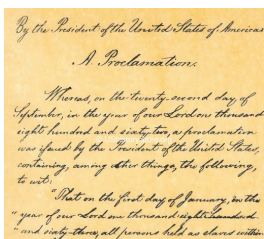 By the President of the United States of America:
A Proclamation.
Whereas, on the twenty-second day of
September, in the year of our Lord one thousand
eight hundred and sixty two, a proclamation
was issued by the President of the United States,
containing, among other things, the following,
to wit:
"That on the first day of January, in the
"year of our Lord one thousand eight hundred
"and sixty-three, all persons held as slaves within